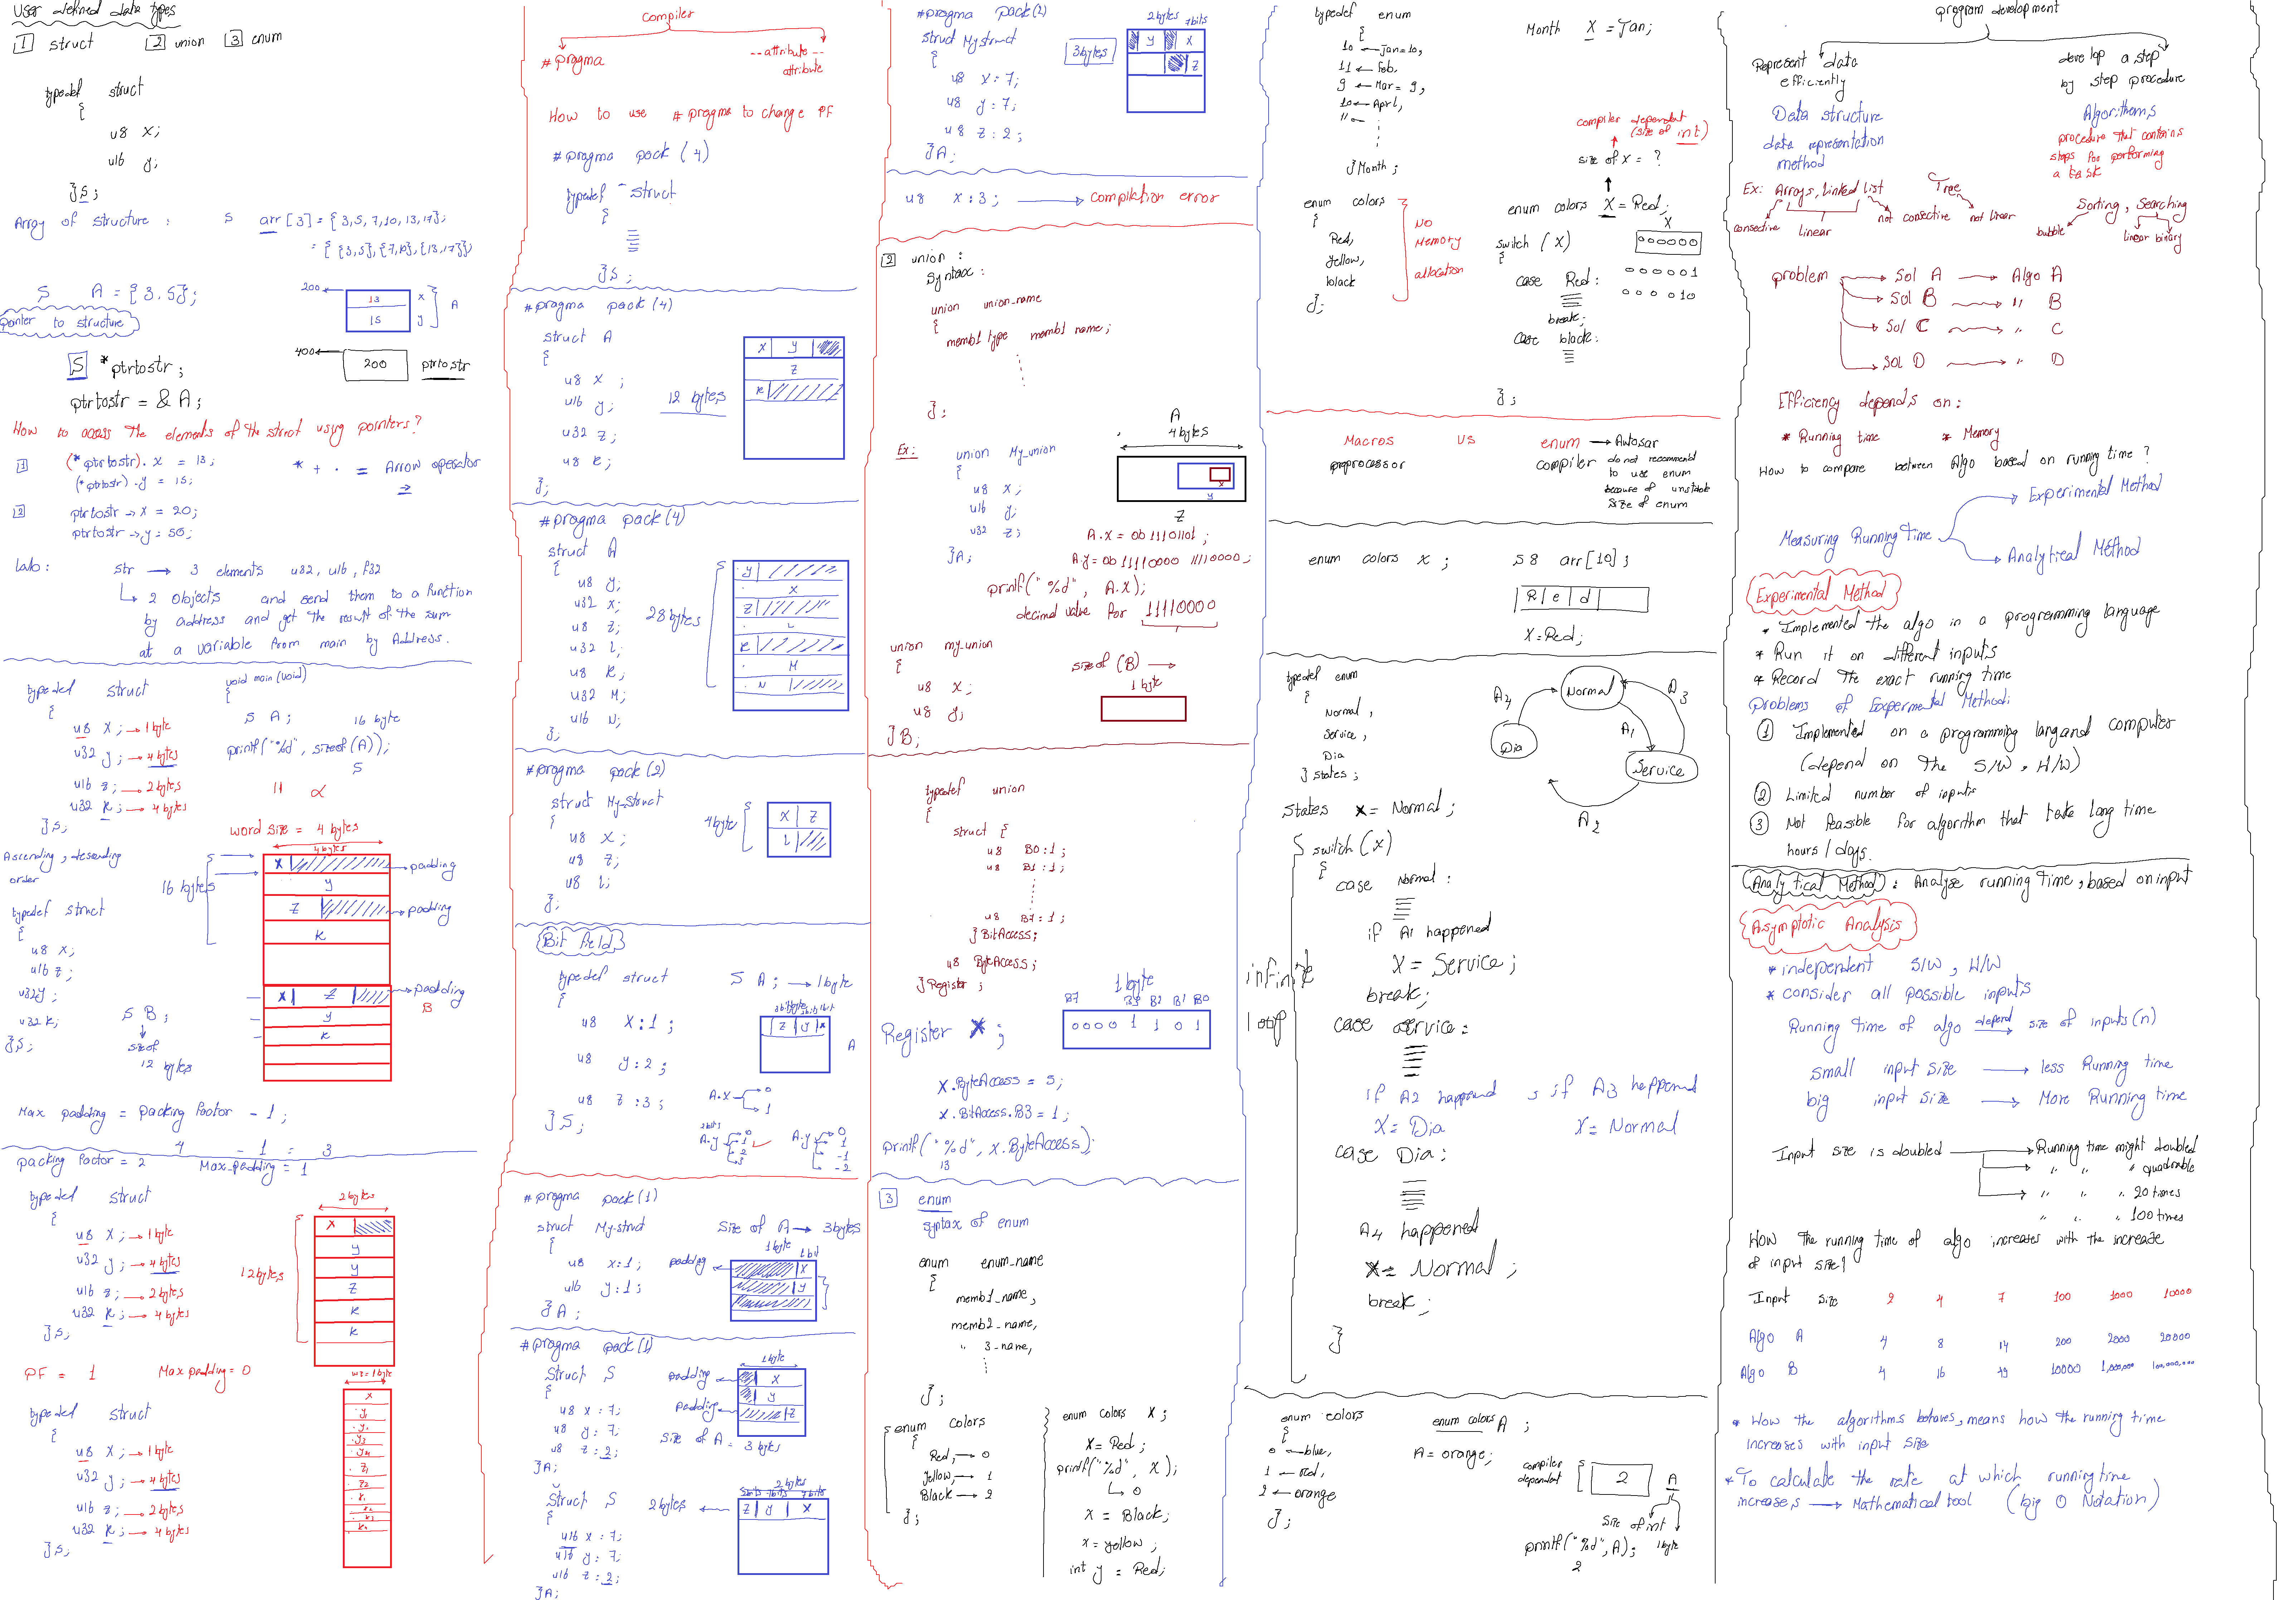 User defined data types
1 struct 2 union 3 enum
typedef struct
{
u8 x;
u16 y;
}S;
Array of structure : S arr[3] = {3,5,7,10,13,17};
= {{3,5},{7,10},{13,17}}
S A = {3,5};
200
13 x
15 y
A
pointer to structure
S *ptrtostr;
400 200 ptrtostr
ptrtostr = &A;
How to access the elements of the struct using pointers?
1 (*ptrtostr).x = 13;
(*ptrtostr).y = 15;
* + . = Arrow operator
→
2 ptrtostr→x = 20;
ptrtostr→y = 50;
Lab: str → 3 elements u32, u16, f32
2 objects and send them to a function
by address and get the result of the sum
at a variable from main by Address.
typedef struct
{
u8 x; → 1 byte
u32 y; → 4 bytes
u16 z; → 2 bytes
u32 k; → 4 bytes
}S;
void main(void)
{
S A; 16 byte
printf("%d", sizeof(A));
S
11 α
word size = 4 bytes
4 bytes
Ascending, desending
order
16 bytes
x padding
y
z padding
k
typedef struct
{
u8 x;
u16 z;
u32 y;
u32 k;
}S;
S B;
size of
12 bytes
x z padding
B
y
k
Max padding = packing factor - 1;
4 - 1 = 3
packing factor = 2 Max padding = 1
typedef struct
{
u8 x; → 1 byte
u32 y; → 4 bytes
u16 z; → 2 bytes
u32 k; → 4 bytes
}S;
2 bytes
12 bytes
x
y
y
z
k
k
PF = 1 Max padding = 0
typedef struct
{
u8 x; → 1 byte
u32 y; → 4 bytes
u16 z; → 2 bytes
u32 k; → 4 bytes
}S;
ws = 1 byte
x
Compiler
#pragma --attribute--
attribute
How to use #pragma to change PF
#pragma pack(4)
typedef struct
{
}S;
#pragma pack(4)
struct A
{
u8 x;
u16 y;
u32 z;
u8 k;
};
12 bytes
x y
z
k
#pragma pack(4)
struct A
{
u8 y;
u32 x;
u8 z;
u32 l;
u8 k;
u32 M;
u16 N;
};
28 bytes
y
x
z
L
k
M
N
#pragma pack(2)
struct My_struct
{
u8 x;
u8 z;
u8 l;
};
4 byte
x z
l
Bit field
typedef struct
{
u8 x:1;
u8 y:2;
u8 z:3;
}S;
S A; → 1 byte
z y x
A
A.x 0
1
2 bits
A.y 0
1
2
3
A.y 0
1
-1
-2
#pragma pack(1)
struct My_struct
{
u8 x:1;
u16 y:1;
}A;
Size of A → 3 bytes
1 byte
1 bit
padding
x
y
#pragma pack(1)
Struct S
{
u8 x:7;
u8 y:7;
u8 z:2;
}A;
1 byte
padding x
y
padding z
size of A = 3 bytes
Struct S
{
u16 x:7;
u16 y:7;
u16 z:2;
}A;
2 bytes
2 bytes
2bits 7bits 7bits
z y x
#pragma pack(2)
struct Mystruct
{
u8 x:7;
u8 y:7;
u8 z:2;
}A;
3 bytes
2 bytes
7bits
y x
z
u8 x:3; → compilation error
2 union:
Syntax:
union union_name
{
memb1 type memb1 name;
};
Ex: union My_union
{
u8 x;
u16 y;
u32 z;
}A;
A
4 bytes
x
y
z
A.x = 0b 11101101;
A.y = 0b 11110000 11110000;
printf("%d", A.x);
decimal value for 11110000
union my_union
{
u8 x;
u8 y;
}B;
size of (B) →
1 byte
typedef union
{
struct {
u8 B0:1;
u8 B1:1;
u8 B7:1;
}BitAccess;
u8 ByteAccess;
}Register;
1 byte
B7 B3 B2 B1 B0
0 0 0 0 1 1 0 1
Register x;
x.ByteAccess = 5;
x.BitAccess.B3 = 1;
printf("%d", x.ByteAccess);
13
3 enum
syntax of enum
enum enum_name
{
memb1_name,
memb2_name,
" 3_name,
};
enum colors
{
Red, → 0
yellow, → 1
Black → 2
};
enum colors x;
x = Red;
printf("%d", x);
0
x = Black;
x = yellow;
int y = Red;
typedef enum
{
10 ← Jan=10,
11 ← feb,
9 ← Mar = 9,
10 ← April,
11 ←
}Month;
Month x = Jan;
compiler dependent
(size of int)
size of x = ?
enum colors
{
Red,
yellow,
black
};
NO
Memory
allocation
enum colors x = Red;
x
000000
switch (x)
{
case Red: 000001
000010
break;
case black:
};
Macros VS enum → Autosar
preprocessor compiler do not recommend
to use enum
because of unstable
size of enum
enum colors x; S8 arr[10];
R e d
x = Red;
typedef enum
{
Normal,
Service,
Dia
}States;
Normal
Dia
Service
A4
A1
A3
A2
States x = Normal;
switch (x)
{
case Normal:
if A1 happened
x = Service;
break;
infinite
loop
case service:
if A2 happened , if A3 happened
x = Dia x = Normal
case Dia:
A4 happened
x = Normal;
break;
}
enum colors
{
0 ← blue,
1 ← red,
2 ← orange
};
enum colors A;
A = orange;
compiler
dependent
2 A
size of int
1 byte
printf("%d", A);
2
program development
Represent data
efficiently
develop a step
by step procedure
Data structure
data representation
method
Algorithems
procedure that contains
steps for performing
a task
Ex: Arrays, Linked list Tree
consective linear not consective not linear
Sorting, Searching
bubble linear binary
problem → Sol A → Algo A
→ Sol B → " B
→ Sol C → " C
→ Sol D → " D
Efficiency depends on:
* Running time * Memory
How to compare between Algo based on running time ?
Experimental Method
Measuring Running Time
Analytical Method
Experimental Method
* Implemented the algo in a programming language
* Run it on different inputs
* Record the exact running time
Problems of Expermental Method:
1 Implemented on a programming lang and computer
(depend on the S/W, H/W)
2 Limited number of inputs
3 Not feasible for algorithm that take long time
hours / days.
Analytical Method : Analyse running Time, based on input
Asymptotic Analysis
* independent S/W, H/W
* consider all possible inputs
Running time of algo depend size of inputs (n)
small input size → less Running time
big input size → More Running time
Input size is doubled → Running time might doubled
" " " quadrable
" " " 20 times
" " " 100 times
How the running time of algo increases with the increase
of input size?
Input size 2 4 7 100 1000 10000
Algo A 4 8 14 200 2000 20000
Algo B 4 16 49 10000 1,000,000 100,000,000
* How the algorithms behaves, means how the running time
increases with input size
* To calculate the rate at which running time
increases → Mathematical tool (big O Notation)